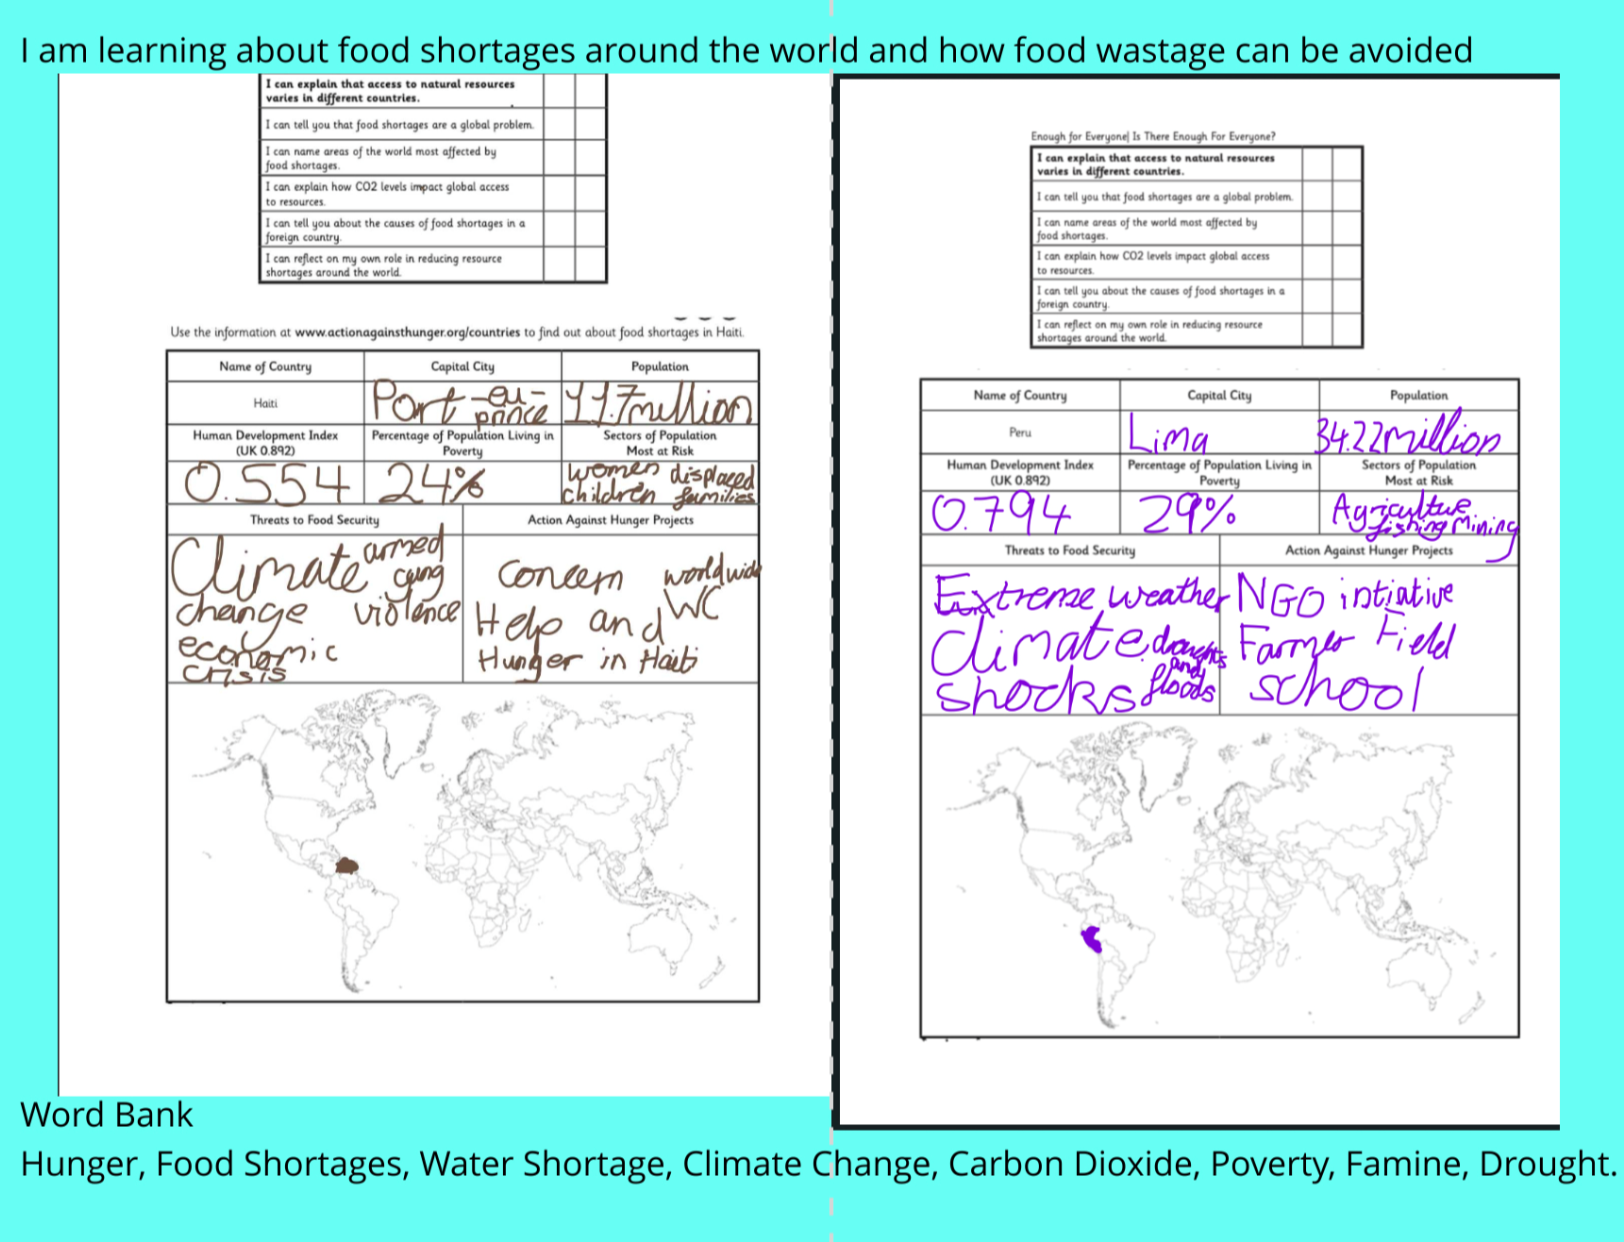 I am learning about food shortages around the world and how food wastage can be avoided
I can explain that access to natural resources
varies in different countries.
I can tell you that food shortages are a global problem.
I can name areas of the world most affected by
food shortages.
I can explain how CO2 levels impact global access
to resources.
I can tell you about the causes of food shortages in a
foreign country.
I can reflect on my own role in reducing resource
shortages around the world.
Use the information at www.actionagainsthunger.org/countries to find out about food shortages in Haiti.
Name of Country Capital City Population
Haiti Port-au-prince 11.7million
Human Development Index
(UK 0.892)
Percentage of Population Living in
Poverty
Sectors of Population
Most at Risk
0.554 24% women displaced
children families
Threats to Food Security Action Against Hunger Projects
Climate armed
gang
change violence
economic
crisis
Concern worldwide
Help and WC
Hunger in Haiti
Enough for Everyone| Is There Enough For Everyone?
I can explain that access to natural resources
varies in different countries.
I can tell you that food shortages are a global problem.
I can name areas of the world most affected by
food shortages.
I can explain how CO2 levels impact global access
to resources.
I can tell you about the causes of food shortages in a
foreign country.
I can reflect on my own role in reducing resource
shortages around the world.
Name of Country Capital City Population
Peru Lima 34.22million
Human Development Index
(UK 0.892)
Percentage of Population Living in
Poverty
Sectors of Population
Most at Risk
0.794 29% Agriculture
fishing Mining
Threats to Food Security Action Against Hunger Projects
Extreme weather
Climate droughts
and
shocks floods
NGO intiative
Farmer Field
school
Word Bank
Hunger, Food Shortages, Water Shortage, Climate Change, Carbon Dioxide, Poverty, Famine, Drought.